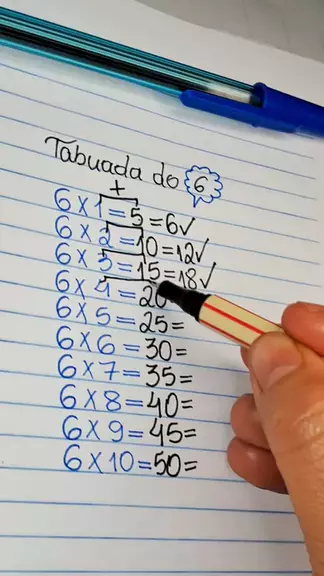 Tabuada do 6
+
6 x 1 = 5 = 6✓
6 x 2 = 10 = 12✓
6 x 3 = 15 = 18✓
6 x 4 = 20
6 x 5 = 25 =
6 x 6 = 30 =
6 x 7 = 35 =
6 x 8 = 40 =
6 x 9 = 45 =
6 x 10 = 50 =